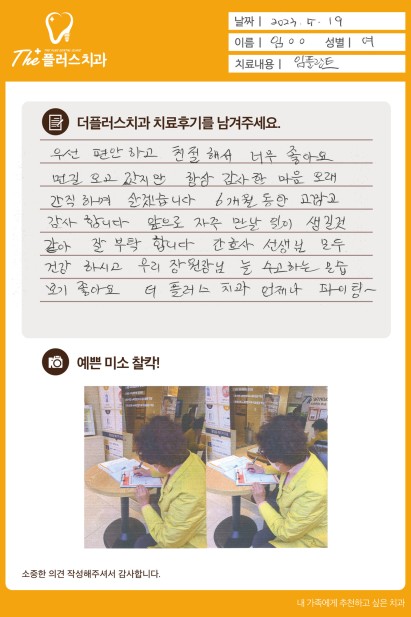 The+ 플러스치과
날짜 | 2023. 5. 19
이름 | 임OO 성별 | 여
치료내용 | 임플란트
더플러스치과 치료후기를 남겨주세요.
우선 편안하고 친절해서 너무 좋아요
먼길 오고 갔지만 항상 감사한 마음 오래
간직하며 살겠습니다 6개월 동안 고맙고
감사 합니다 앞으로 자주 만날 일이 생길것
같아 잘 부탁 합니다 간호사 선생님 모두
건강 하시고 우리 장원장님 늘 수고하는 모습
보기 좋아요 더 플러스 치과 언제나 파이팅~
예쁜 미소 찰칵!
소중한 의견 작성해주셔서 감사합니다.
내 가족에게 추천하고 싶은 치과